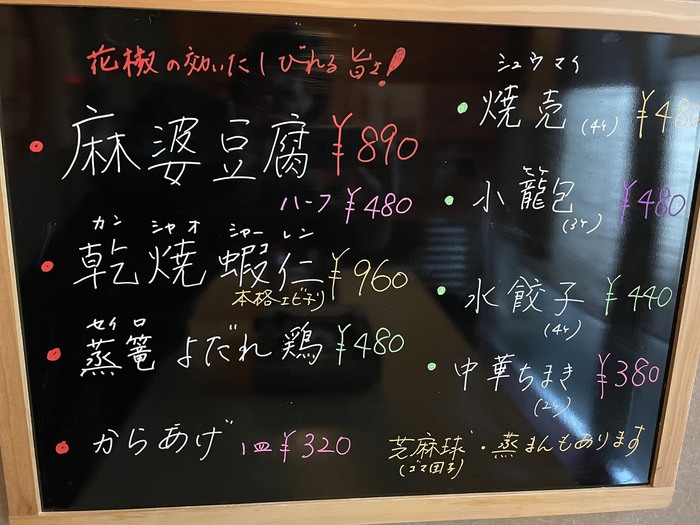 花椒の効いたしびれる旨さ!
麻婆豆腐 ¥890
ハーフ ¥480
カン シャオ シャー レン
乾焼蝦仁 ¥960
本格エビチリ
セイロ
蒸篭 よだれ鶏 ¥480
からあげ 1皿 ¥320
シュウマイ
焼売 (4ケ) ¥480
小籠包 ¥480
(3ケ)
水餃子 ¥440
(4ケ)
中華ちまき ¥380
(2ケ)
芝麻球・蒸まんもあります
(ゴマ団子)